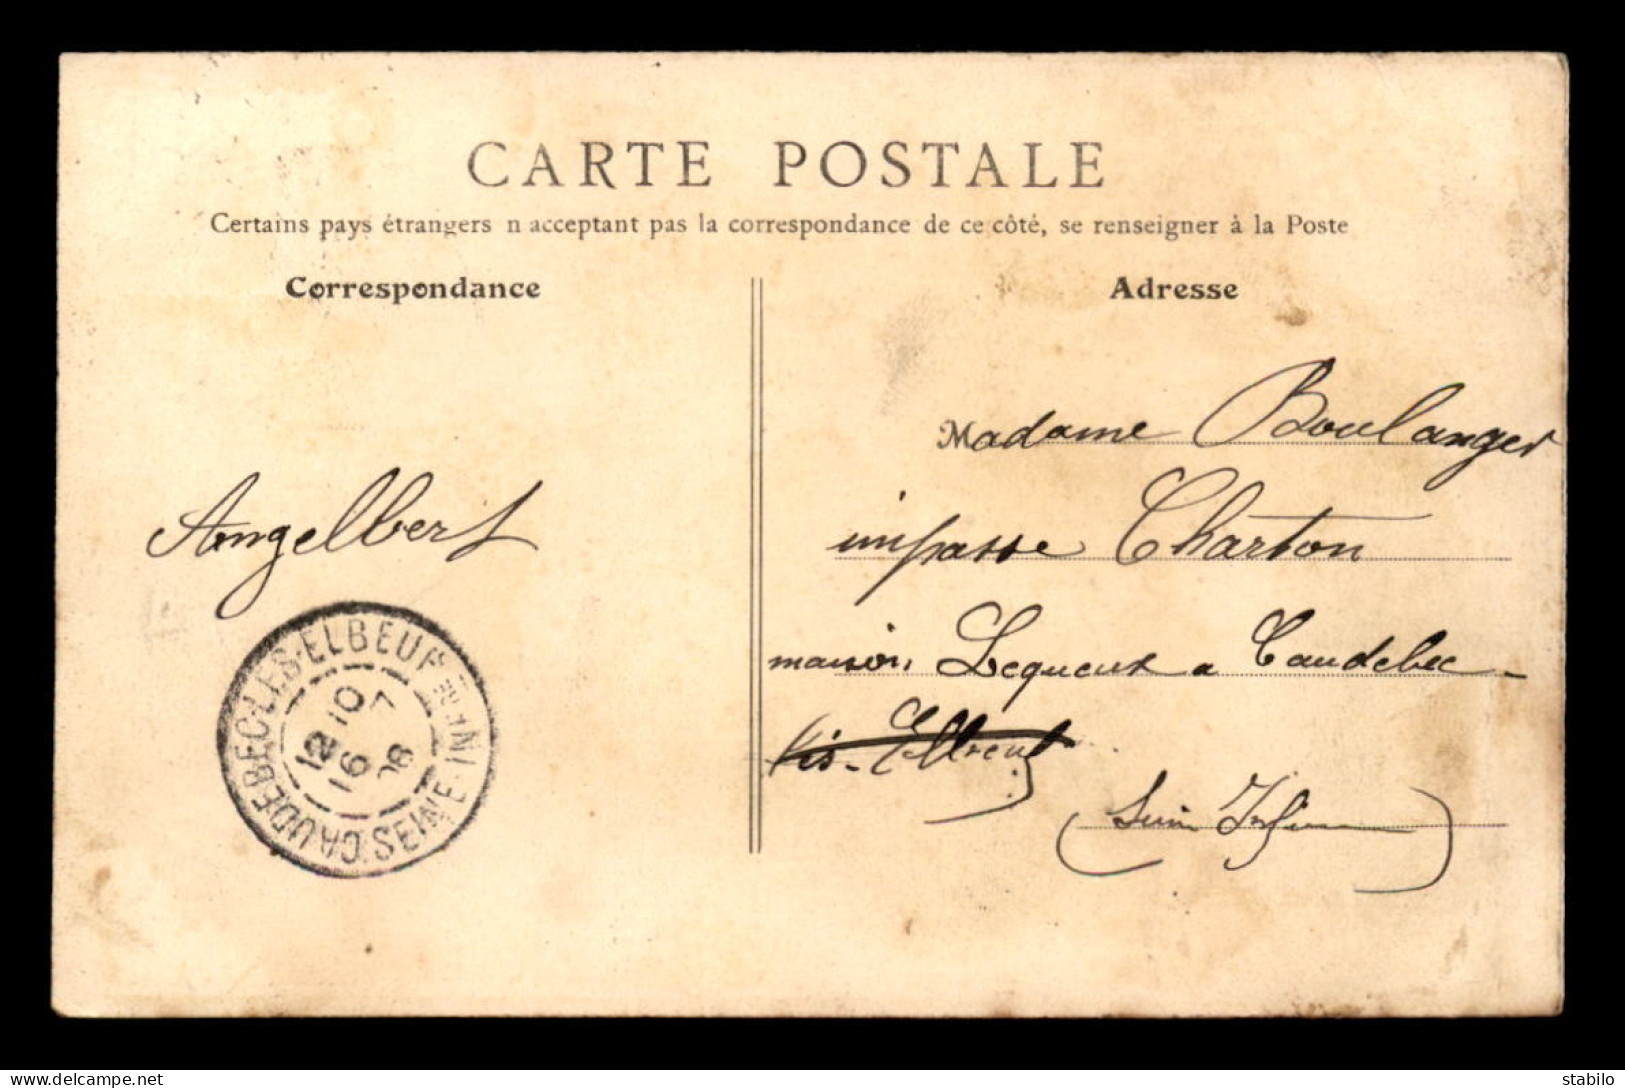 CARTE POSTALE
Certains pays étrangers n acceptant pas la correspondance de ce côté, se renseigner à la Poste
Correspondance
Adresse
Madame Boulanger
impasse Charton
maison Lequeux a Caudebec-
Angelbert
lès-Elbeuf
(Seine Infre)
CAUDEBEC-LES-ELBEUF
SEINE-INFRE
12 10
16 7
08
Delcampe.net
stabilo